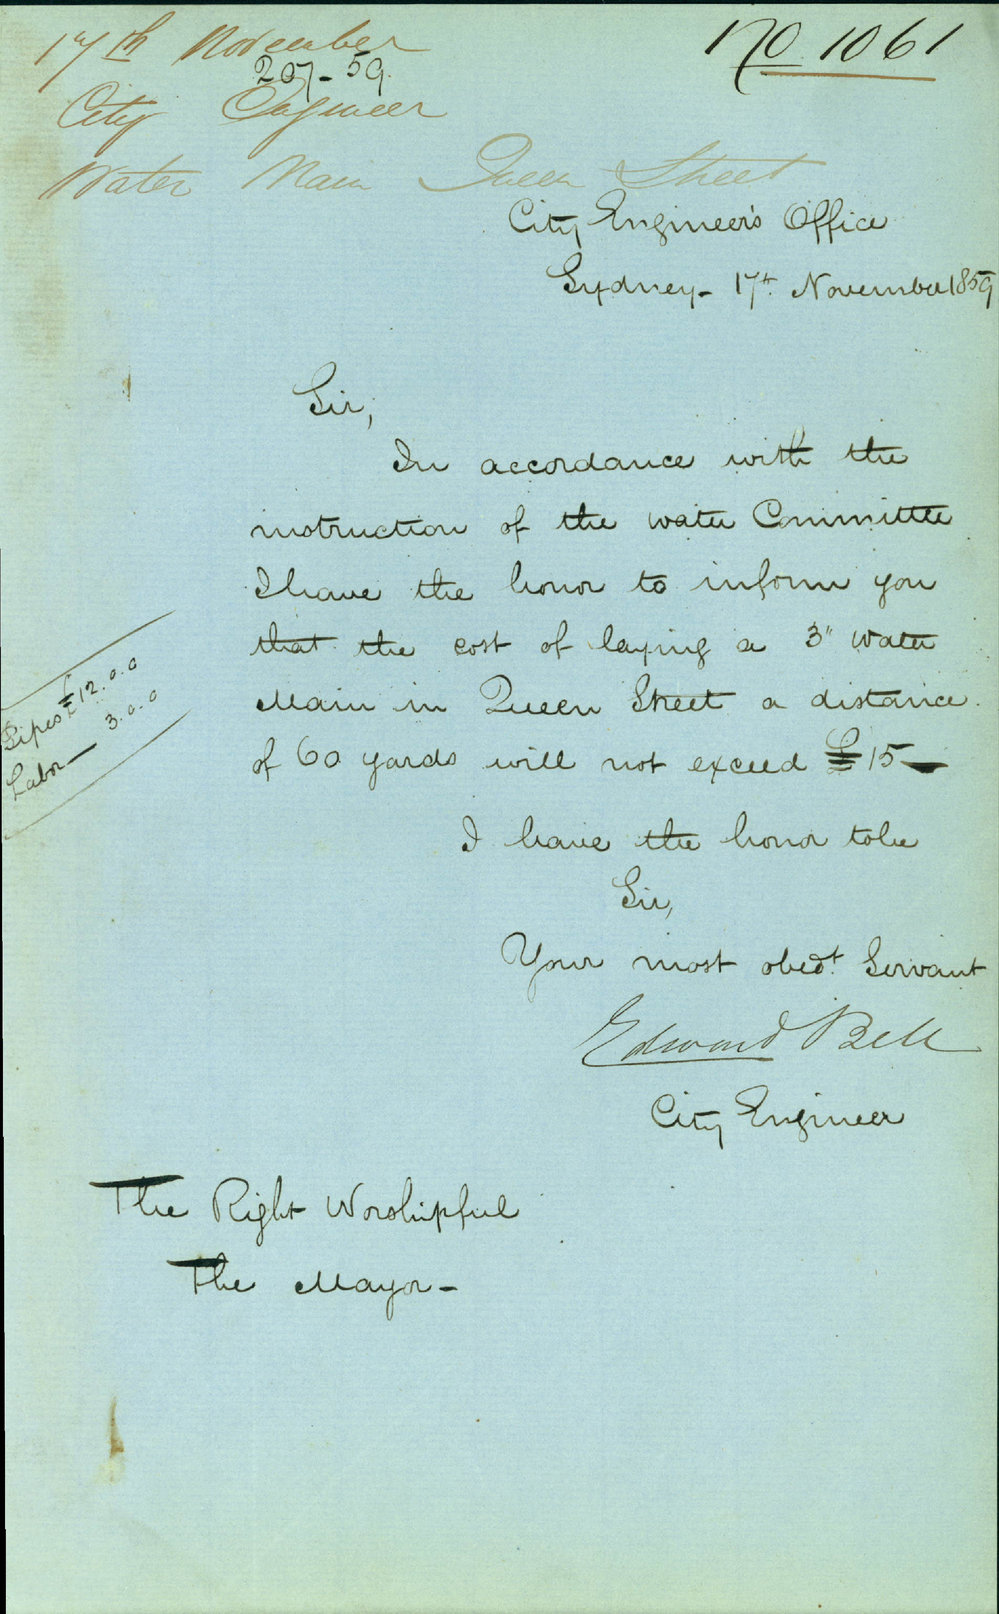 17th November
No 1061
207-59
City Engineer
Water Main Queen Street
City Engineer's Office
Sydney- 17th November 1859
Sir,
In accordance with the
instruction of the Water Committee
I have the honor to inform you
that the cost of laying a 3" Water
Main in Queen Street a distance
of 60 yards will not exceed £15—
Pipes £12.0.0
Labor— 3.0.0
I have the honor to be
Sir,
Your most obedt. Servant
Edward Bell
City Engineer
The Right Worshipful
The Mayor-